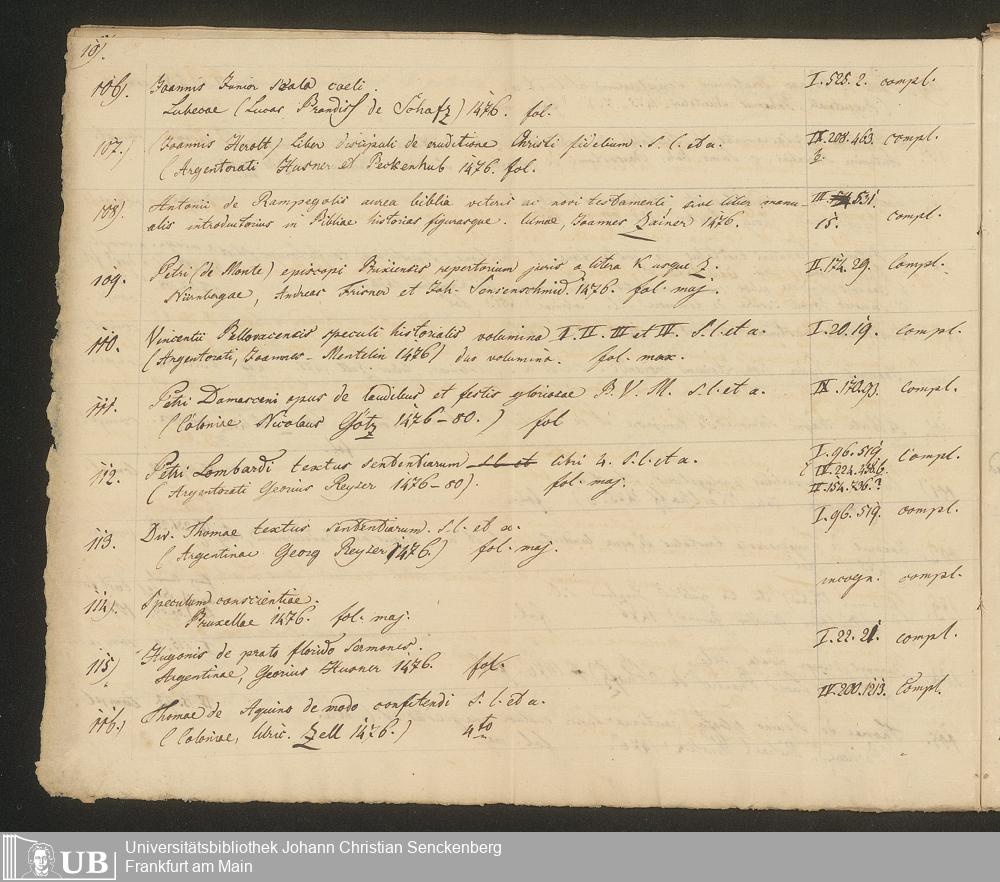 10).
106). Joannis Junior scala coeli I. 525. 2. compl.
Lubecae (Lucas Brandis de Schafz) 1476. fol.
107.) (Joannis Herolt) liber discipuli de eruditione Christi fidelium. s. l. et a. IV. 208. 463. compl.
(Argentorati Husner et Beckenhub 1476. fol. 2.
108). Antonii de Rampegolis aurea biblia veteris ac novi testamenti sive liber manu- III. 531.
alis introductorius in Bibliae historias figurasque. Ulmae, Joannes Zainer 1476. 15. compl.
109. Petri (de Monte) episcopi Brixiensis repertorium juris a litera K usque Z. II. 174. 29. Compl.
Nürnbagae, Andreas Frisner et Joh. Sensenschmid. 1476. fol. maj.
110. Vincentii Bellovacensis speculi historialis volumina I. II. III et IV. S. l. et a. I. 20. 19. compl.
(Argentorati, Joannes Mentelin 1476) duo volumina. fol. max.
111. Petri Damasceni opus de laudibus et festis gloriosae B. V. M. s. l. et a. IV. 170. 93. compl.
(Coloniae Nicolaus Götz 1476-80.) fol
112. Petri Lombardi textus sententiarum s. l. et libri 4. s. l. et a. I. 96. 519. compl.
(Argentorati Georius Reyser 1476-80). fol. maj. IV. 224. 486.
IV. 154. 736.?
113. Div. Thomae textus sententiarum. s. l. et a. I. 96. 519. compl.
(Argentinae Georg Reyser 1476.) fol. maj.
114). Speculum conscientiae. incogn. compl.
Bruxellae 1476. fol. maj.
115) Hugonis de prato florido Sermones. I. 22. 21. compl.
Argentinae, Georius Husner 1476. fol.
116.) Thomae de Aquino de modo confitendi s. l. et a. IV. 200. 1213. Compl.
(Coloniae, Ulric. Zell 1476.) 4to
UB
Universitätsbibliothek Johann Christian Senckenberg
Frankfurt am Main